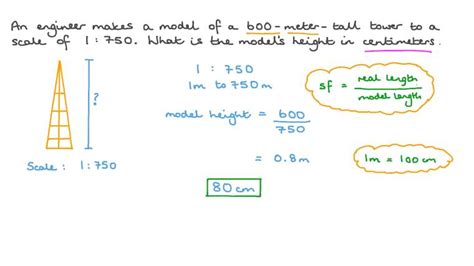 An engineer makes a model of a 600-meter-tall tower to a
scale of 1:750. What is the model's height in centimeters.
1 : 750
1m to 750m
sf = real length / model length
?
model height = 600 / 750
= 0.8m
1m = 100cm
Scale: 1:750
80cm